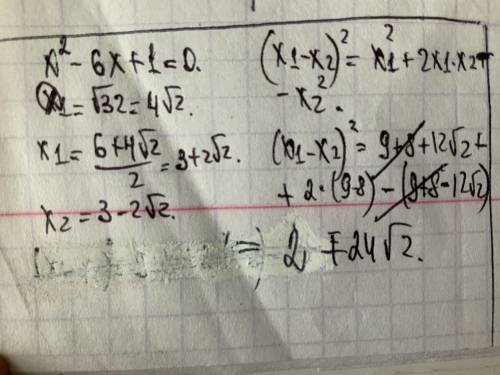 x² - 6x + 1 = 0.
x1 = √32 = 4√2.
x1 = (6+4√2)/2 = 3+2√2.
x2 = 3-2√2.
(x1-x2)² = x1² + 2x1·x2 +
- x2².
(x1-x2)² = 9+8+12√2 +
+ 2·(9-8) - (9+8-12√2)
=) 2 + 24√2.